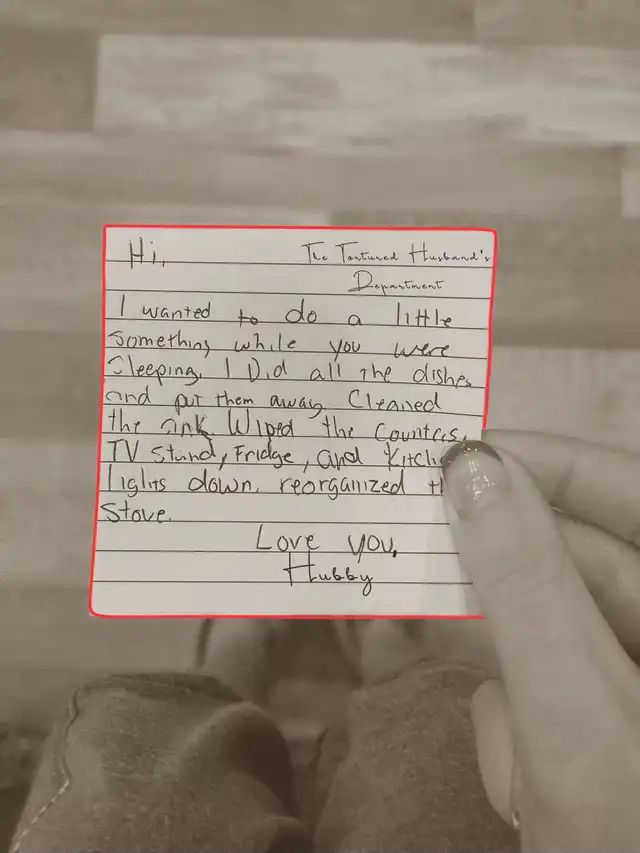 Hi,
The Tortured Husband's
Department
I wanted to do a little
something while you were
Sleeping. I Did all the dishes
and put them away. Cleaned
the sink. Wiped the counters,
TV stand, Fridge, and
lights down. reorganized
stove.
Love you,
Hubby